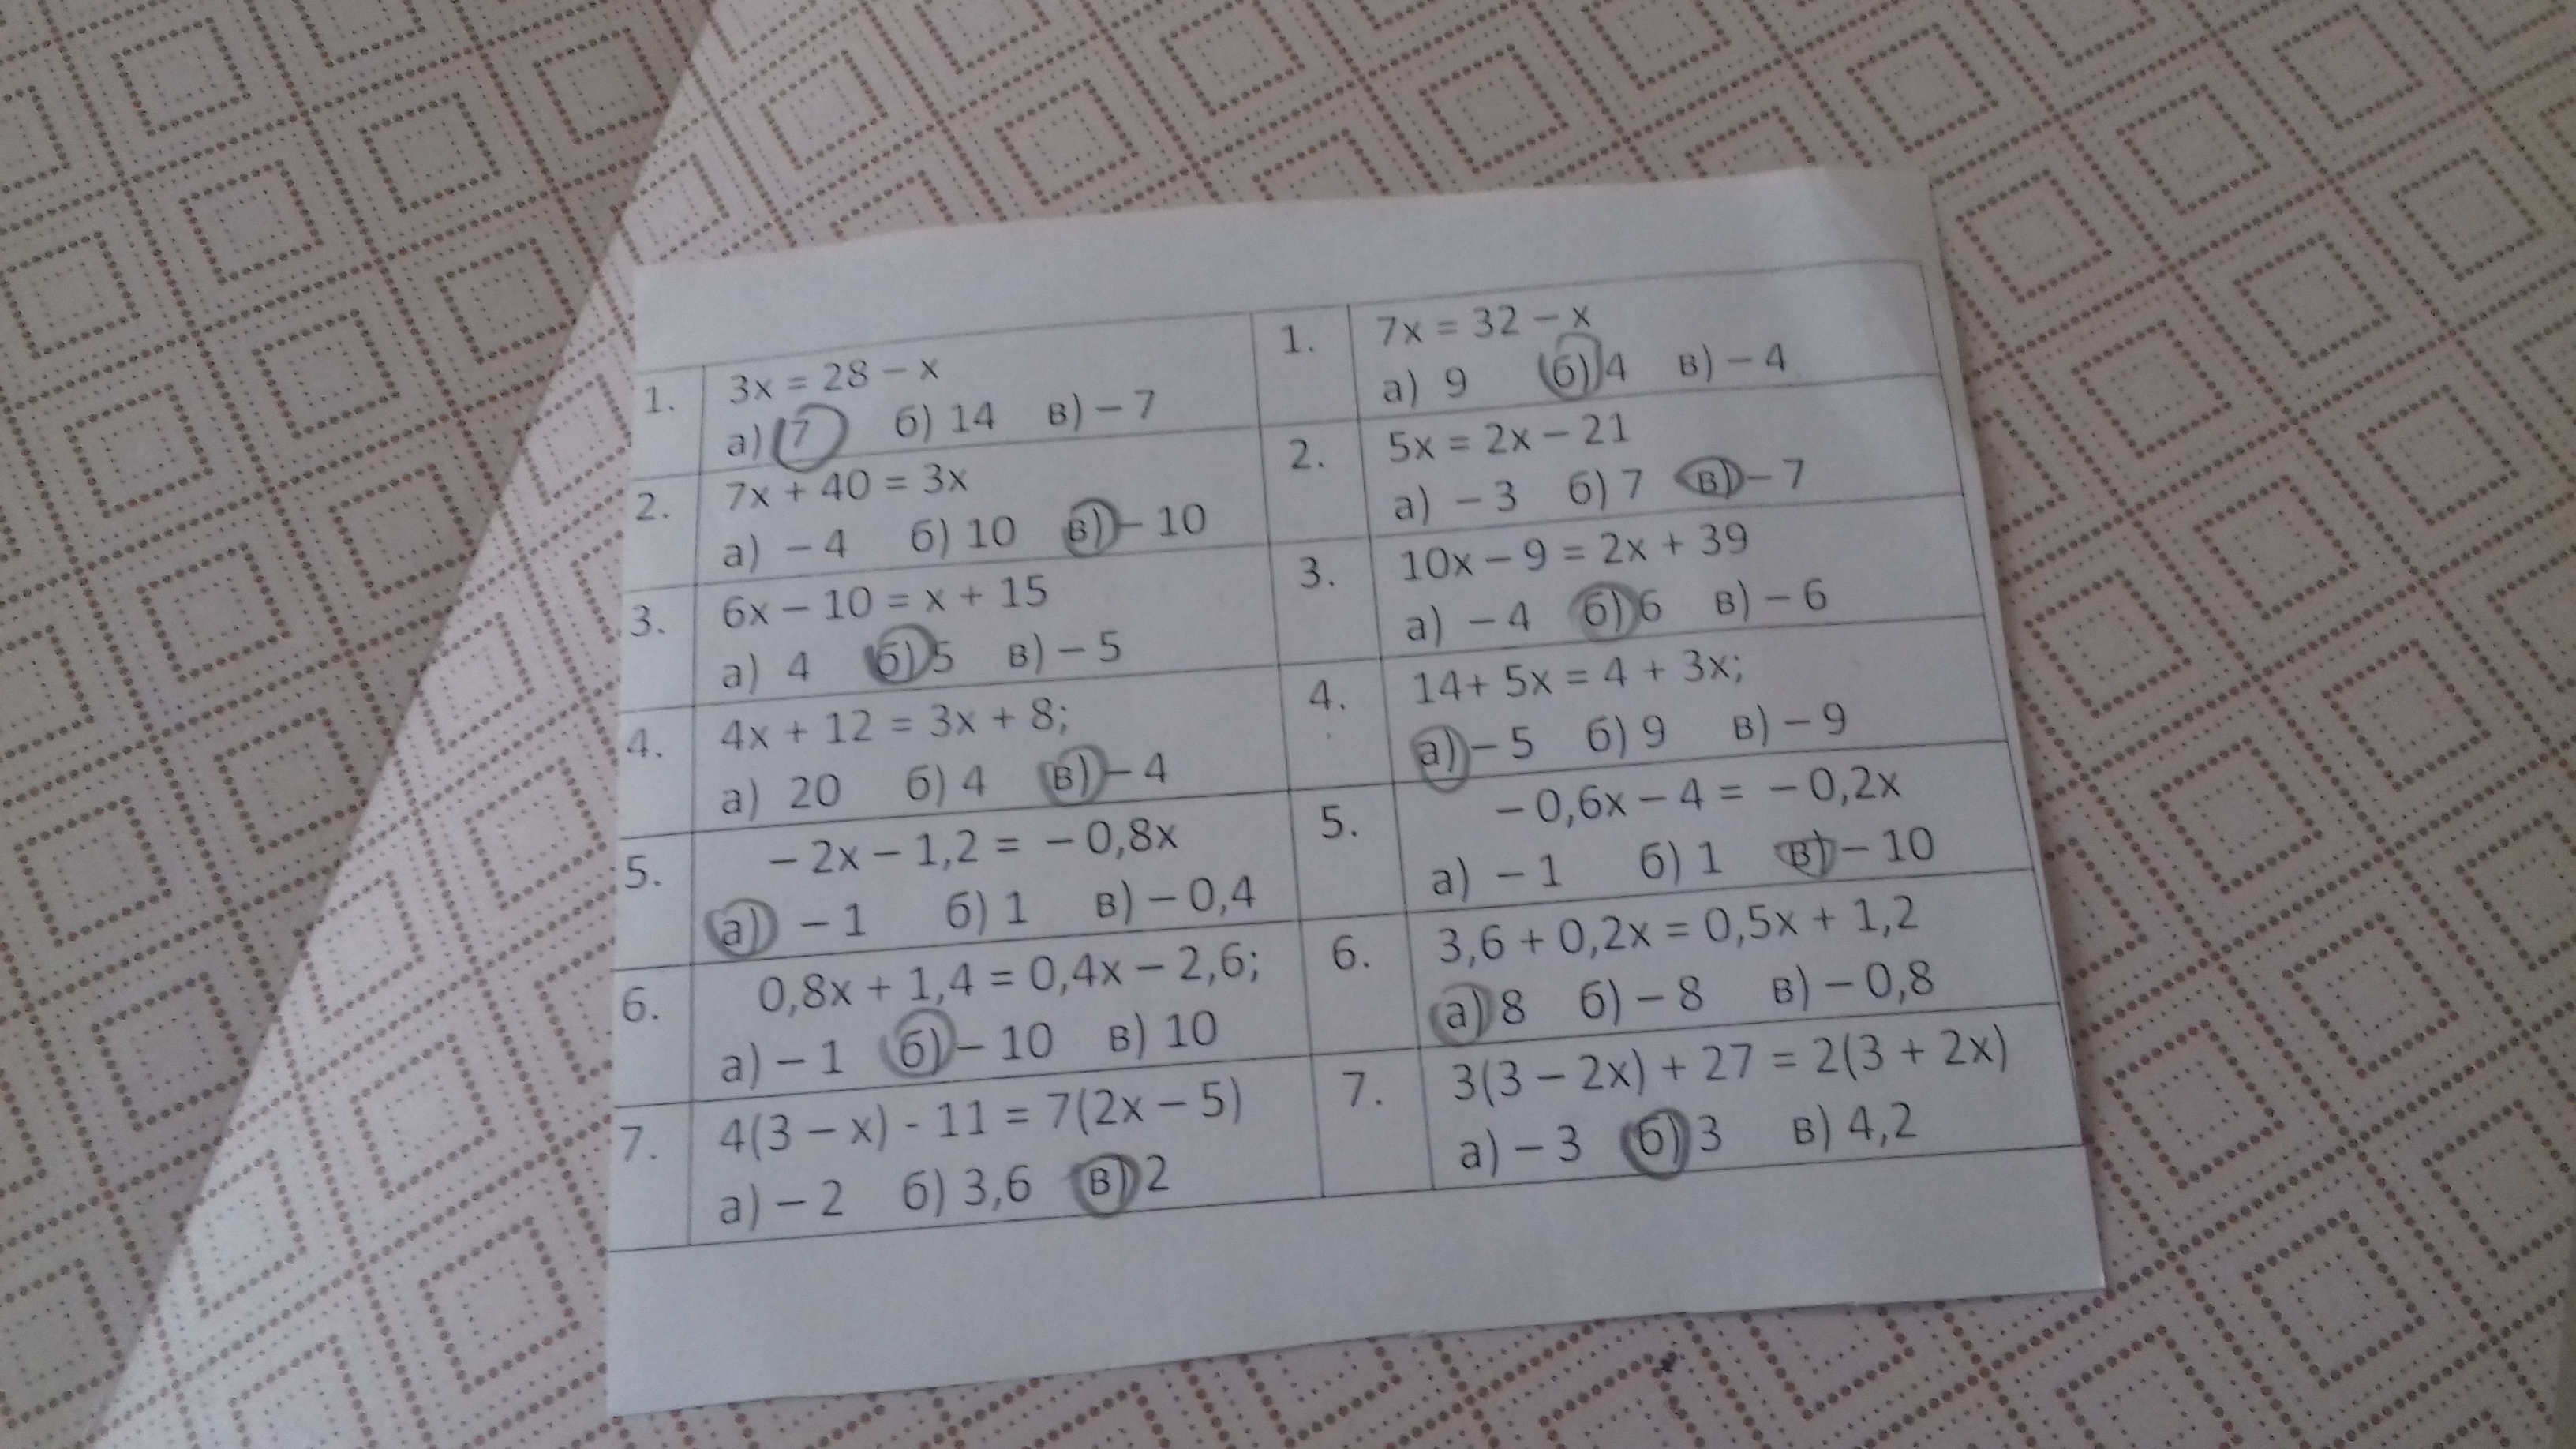 1. 3x = 28 – x
а) 7 б) 14 в) – 7
2. 7x + 40 = 3x
а) – 4 б) 10 в) – 10
3. 6x – 10 = x + 15
а) 4 б) 5 в) – 5
4. 4x + 12 = 3x + 8;
а) 20 б) 4 в) – 4
5. – 2x – 1,2 = – 0,8x
а) – 1 б) 1 в) – 0,4
6. 0,8x + 1,4 = 0,4x – 2,6;
а) – 1 б) – 10 в) 10
7. 4(3 – x) - 11 = 7(2x – 5)
а) – 2 б) 3,6 в) 2
1. 7x = 32 – x
а) 9 б) 4 в) – 4
2. 5x = 2x – 21
а) – 3 б) 7 в) – 7
3. 10x – 9 = 2x + 39
а) – 4 б) 6 в) – 6
4. 14+ 5x = 4 + 3x;
а) – 5 б) 9 в) – 9
5. – 0,6x – 4 = – 0,2x
а) – 1 б) 1 в) – 10
6. 3,6 + 0,2x = 0,5x + 1,2
а) 8 б) – 8 в) – 0,8
7. 3(3 – 2x) + 27 = 2(3 + 2x)
а) – 3 б) 3 в) 4,2